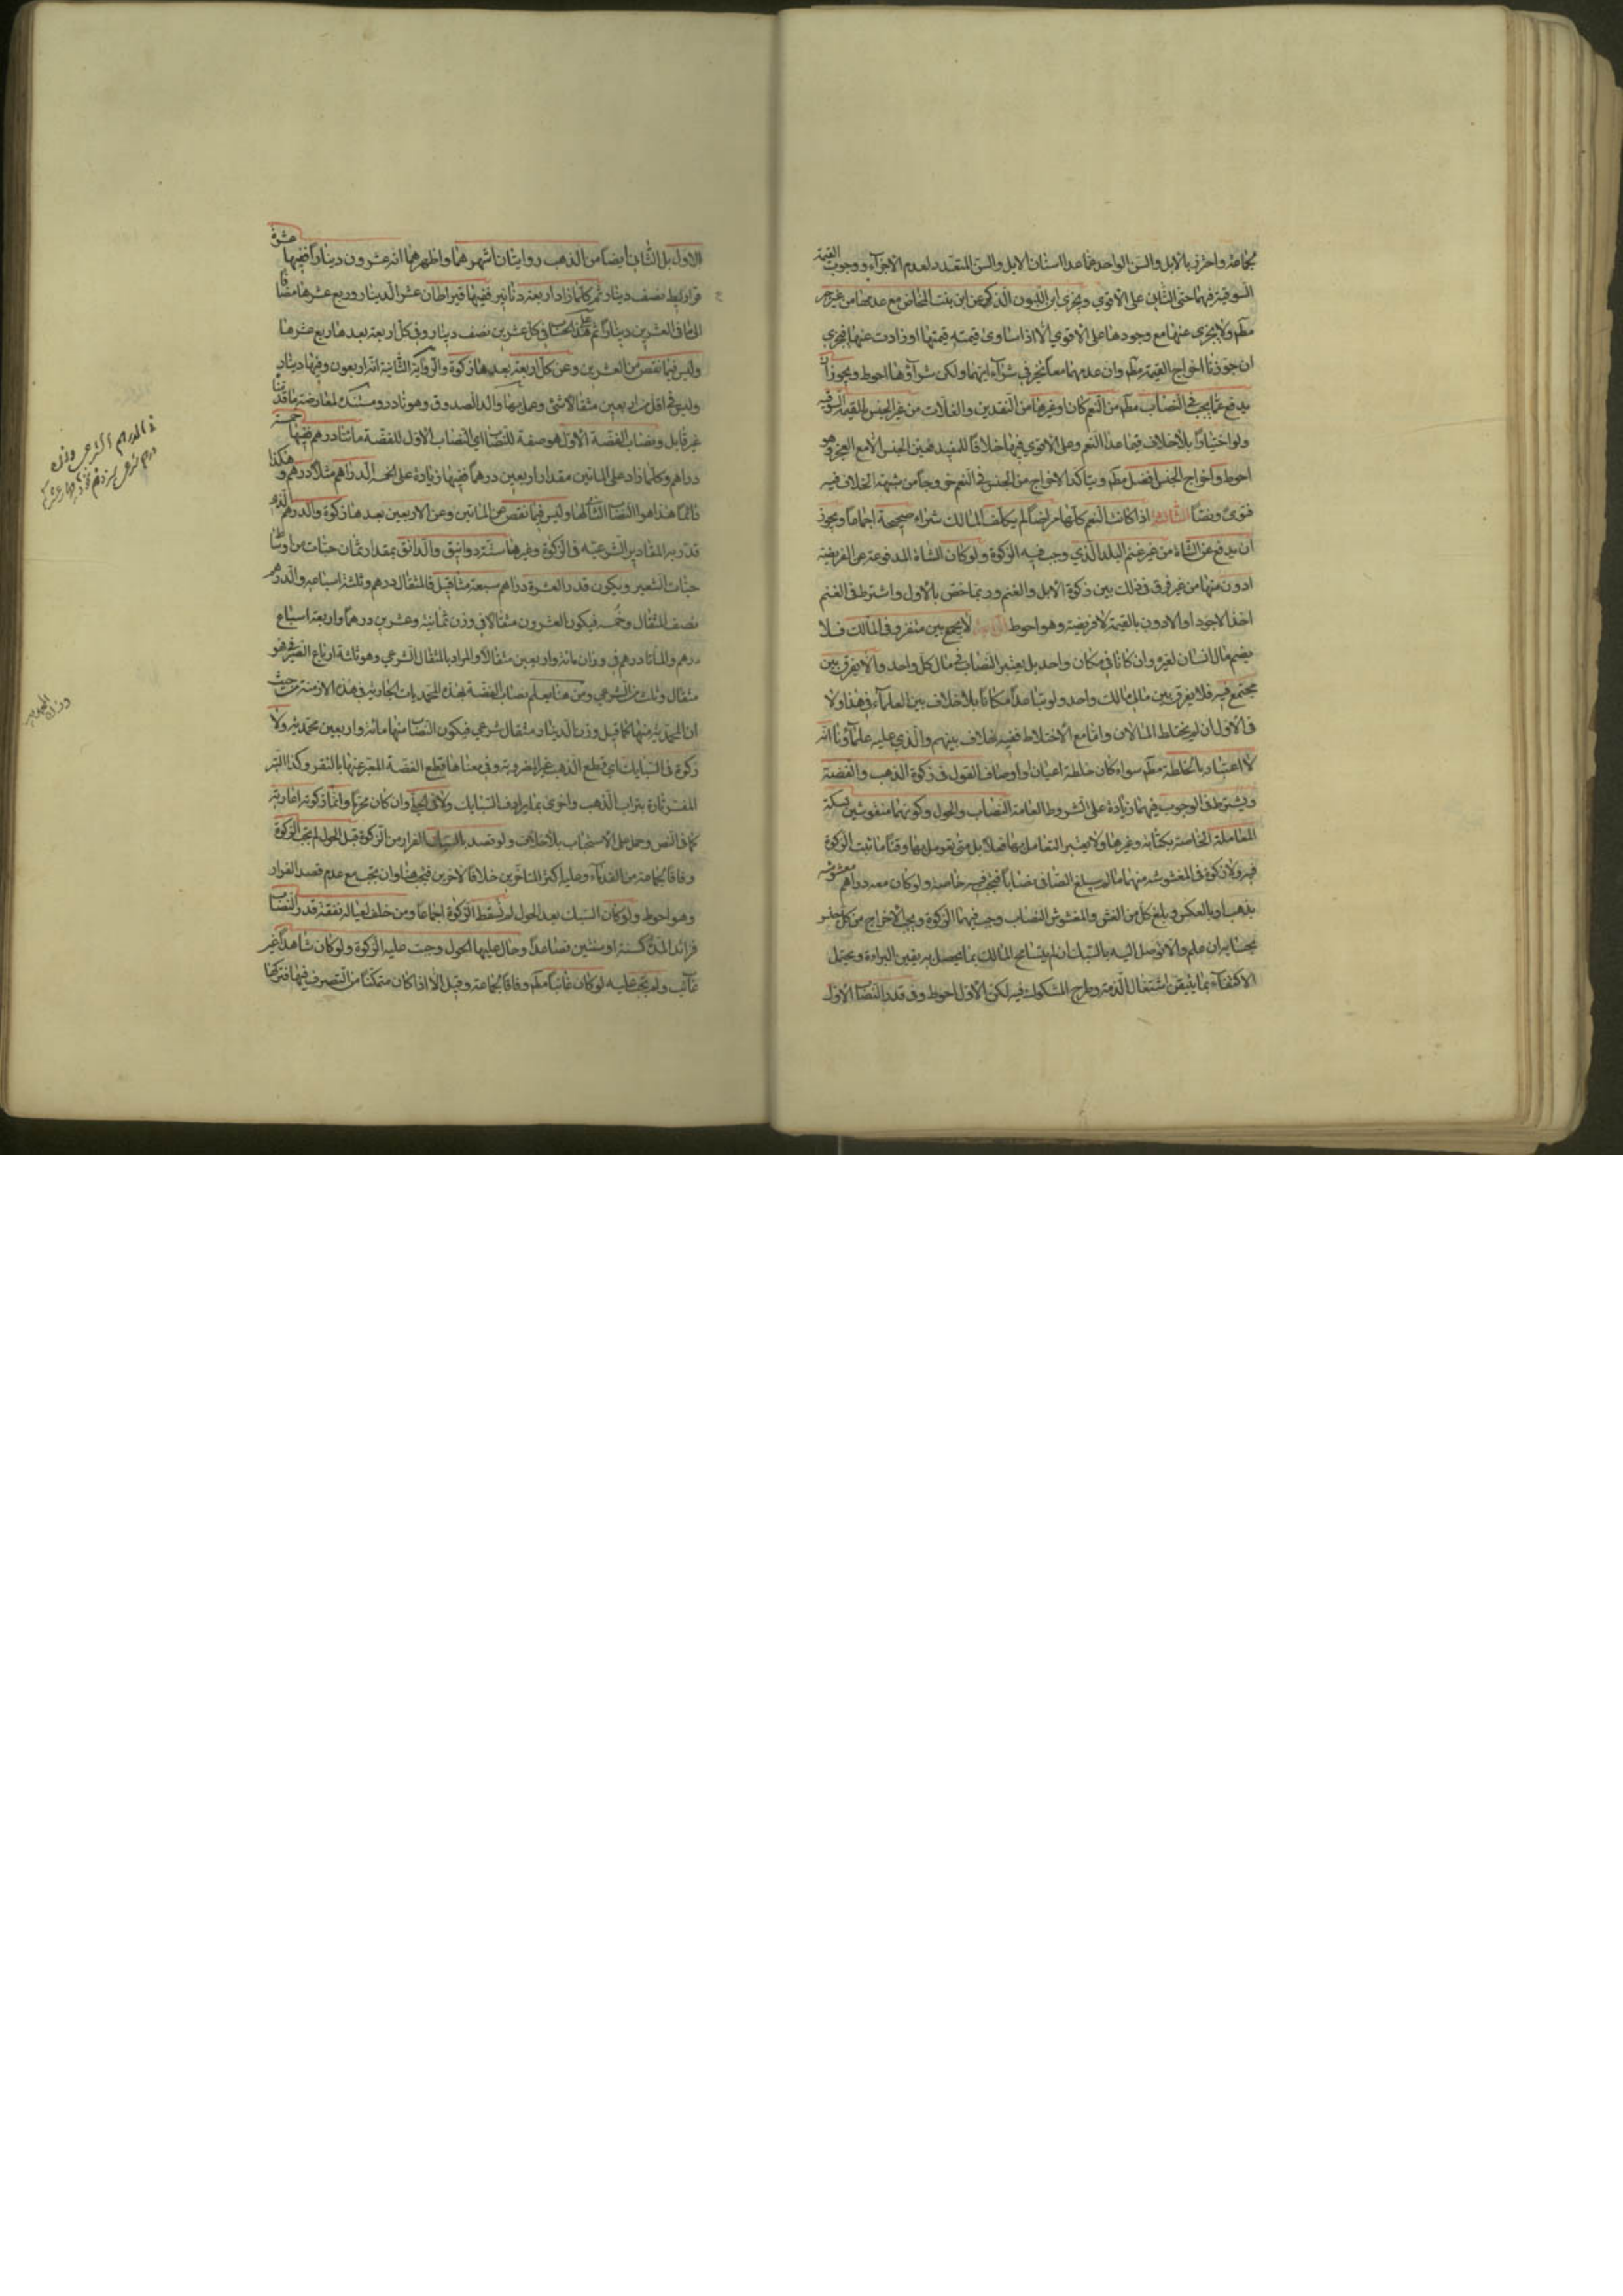 لجماعة واحترز بالابل والسن الواحد عما عدا اسنان الابل والسن المتعدد لعدم الاجزاء ووجوب القيمة
السوقية فيهما حتى الثاني على الاقوى ويجزى ابن اللبون الذكر عن ابن بنت المخاض مع عدمها من غير جبر
مطم ولا يجزى عنها مع وجودها على الاقوى الا اذا ساوى قيمته قيمتها او زادت عنها فيجزى
ان جوزنا اخراج القيمة مطم وان عدمهما معا تخير في شراء ايهما ولكن شراؤها احوط ويجوز ان
يدفع عما يجب في النصاب مطم من النعم كان او غيرها من النقدين والغلات من غير الجنس بالقيمة السوقية
ولو اختيارا بلا خلاف فيما عدا النعم وعلى الاقوى فيها خلافا للمفيد فعين الجنس الا مع العجز وهو
احوط واخراج الجنس افضل مطم ويتاكد الاخراج من الجنس في النعم خروجا من شبهة الخلاف فيه
فتوى ونصا الثالثة اذا كانت النعم كلها مراضا لم يكلف المالك شراء صحيحة اجماعا ويجوز
ان يدفع عن الشاة من غير غنم البلد الذي وجب فيه الزكوة ولو كان الشاة المدفوعة عن الفريضة
ادون منها من غير فرق في ذلك بين زكوة الابل والغنم وربما خص بالاول واشترط في الغنم
اخذ الاجود او الادون بالقيمة لا فريضة وهو احوط الرابعة لا يجمع بين متفرق في المالك فلا
يضم مال انسان لغيره وان كانا في مكان واحد بل يعتبر النصاب في مال كل واحد ولا يفرق بين
مجتمع فيه فلا يفرق بين مال مالك واحد ولو تباعدا مكانا بلا خلاف بين العلماء في هذا ولا
في الاول ان لم يختلط المالان واما مع الاختلاط ففيه خلاف بينهم والذي عليه علماؤنا انه
لا اعتبار بالخلطة مطم سواء كان خلطة اعيان او اوصاف القول في زكوة الذهب والفضة
ويشترط في الوجوب فيهما زيادة على الشروط العامة النصاب والحول وكونهما منقوشين بسكة
المعاملة الخاصة بكتابة وغيرها ولا يعتبر التعامل بها فعلا بل متى تعومل بها وقتا ما ثبت الزكوة
فيه ولا زكوة في المغشوشة منهما ما لم يبلغ الصافي نصابا فتجب فيه خاصة ولو كان معه دراهم مغشوشة
بذهب او بالعكس وبلغ كل من الغش والمغشوش النصاب وجب فيهما الزكوة ويجب الاخراج من كل جنس
بحسابه ان علم والا توصل اليه بالسبك ان لم يتسامح المالك بما يحصل به يقين البراءة ويحتمل
الاكتفاء بما يتيقن اشتغال الذمة به وطرح المشكوك فيه لكن الاول احوط وفي قدر النصاب الاول
الاول بل الثاني ايضا من الذهب روايتان اشهرهما واظهرهما انه عشرون دينارا ففيها عشرة
قراريط نصف دينار ثم كلما زاد اربعة دنانير ففيها قيراطان عشر الدينار وربع عشرها مضافا
الى ما في العشرين دينارا ثم على هذا الحساب في كل عشرين نصف دينار وفي كل اربعة بعدها ربع عشرها
وليس فيما نقص من العشرين وعن كل اربعة بعدها زكوة والرواية الثانية انه اربعون وفيها دينار
وليس في اقل من اربعين مثقالا شئ وعمل بها والد الصدوق وهو نادر ومستنده لمعارضة ما قدمنا
غير قابل ونصاب الفضة الاول هو صفة للنصاب اي النصاب الاول للفضة مائتا درهم ففيها خمسة
دراهم وكلما زاد على المائتين مقدار اربعين درهما ففيها زيادة على الخمسة الدراهم مثلا درهم وهكذا
دائما هذا هو النصاب الثاني لها وليس فيما نقص عن المائتين وعن الاربعين بعدها زكوة والدرهم الذي
قدر به المقادير الشرعيه في الزكوة وغيرها ستة دوانيق والدانق بمقدار ثمان حبات من اوساط
حبات الشعير ويكون قدر العشرة دراهم سبعة مثاقيل فالمثقال درهم وثلثة اسباعه والدرهم
نصف المثقال وخمسه فيكون العشرون مثقالا في وزن ثمانية وعشرين درهما واربعة اسباع
درهم والمائتا درهم في وزان مائة واربعين مثقالا والمراد بالمثقال الشرعي وهو ثلثة ارباع الصيرفي فهو
مثقال وثلث من الشرعي ومن هنا يعلم نصاب الفضة بهذه المحمديات الجارية في هذه الازمنة من حيث
ان المحمدية منها كما قيل وزن الدينار مثقال شرعي فيكون النصاب منها مائة واربعين محمدية ولا
زكوة في السبايك اي قطع الذهب غير المضروبة وفي معناها قطع الفضة المعبر عنها بالنقر وكذا التبر
المفسر تارة بتراب الذهب واخرى بما يرادف السبايك ولا في الحلي وان كان محرما وانما زكوته اعاريته
كما في النص وحمل على الاستحباب بلا خلاف ولو قصد بالسبك الفرار من الزكوة قبل الحول لم تجب الزكوة
وفاقا لجماعة من القدماء وعليه اكثر المتاخرين خلافا لاخرين فتجب هنا وان تجب مع عدم قصد الفرار
وهو احوط ولو كان السبك بعد الحول لم تسقط الزكوة اجماعا ومن خلف لعياله نفقة قدر النصاب
فزائدا لمدة كسنة او سنتين فصاعدا وحال عليها الحول وجبت عليه الزكوة ولو كان شاهدا غير
غائب ولم تجب عليه لو كان غائبا مطم وفاقا لجماعة وقيل الا اذا كان متمكنا من التصرف فيها فتركها